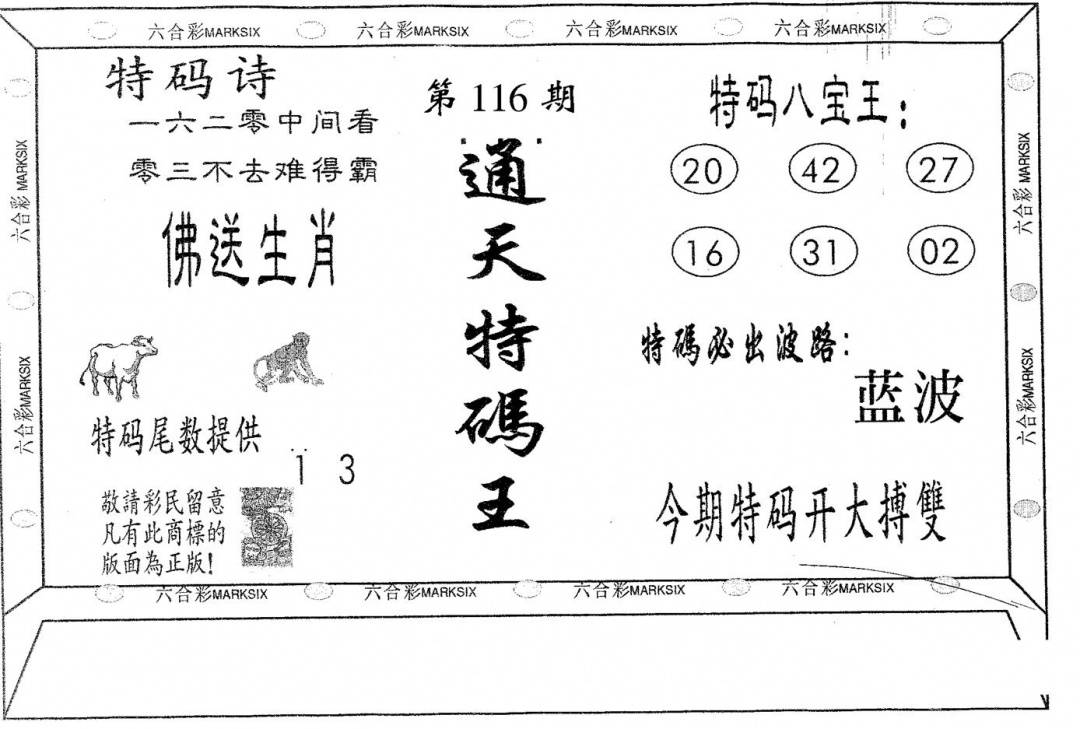 六合彩MARKSIX 六合彩MARKSIX 六合彩MARKSIX 六合彩MARKSIX
特码诗
一六二零中间看
零三不去难得霸
佛送生肖
特码尾数提供
1 3
敬請彩民留意
凡有此商標的
版面為正版!
第116期
通天特碼王
特码八宝王:
20 42 27
16 31 02
特碼必出波路:
蓝波
今期特码开大搏雙
六合彩 MARKSIX
六合彩MARKSIX
六合彩 MARKSIX
六合彩MARKSIX
六合彩MARKSIX 六合彩MARKSIX 六合彩MARKSIX 六合彩MARKSIX